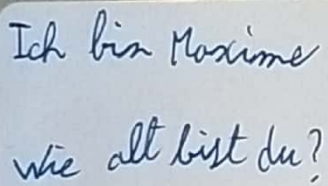 Ich bin Maxime
wie alt bist du?